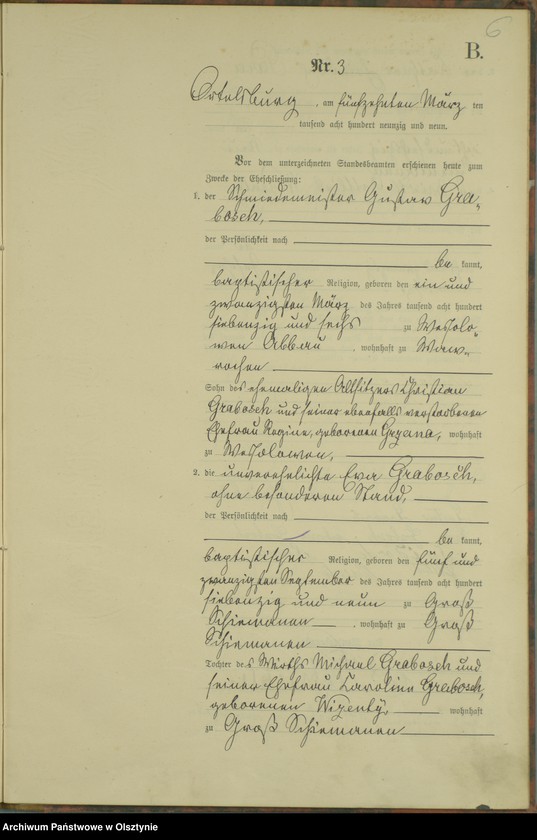 6
B.
Nr. 3
Ortelsburg, am fünfzehnten März ten
tausend acht hundert neunzig und neun.
Vor dem unterzeichneten Standesbeamten erschienen heute zum
Zwecke der Eheschließung:
1. der Schmiedemeister Gustav Gra-
bosch,
der Persönlichkeit nach
be kannt,
baptistischer Religion, geboren den ein und
zwanzigsten März des Jahres tausend acht hundert
siebenzig und sechs zu Wessolo-
wen Abbau, wohnhaft zu Waw-
rochen
Sohn des ehemaligen Altsitzers Christian
Grabosch und seiner ebenfalls verstorbenen
Ehefrau Regine, geborenen Gryena, wohnhaft
zu Wessolowen,
2. die unverehelichte Eva Grabosch,
ohne besonderen Stand,
der Persönlichkeit nach
be kannt,
baptistischer Religion, geboren den fünf und
zwanzigsten September des Jahres tausend acht hundert
siebenzig und neun zu Groß
Schiemanen, wohnhaft zu Groß
Schiemanen
Tochter des Wirths Michael Grabosch und
seiner Ehefrau Caroline Grabosch,
geborenen Wizenty, wohnhaft
zu Groß Schiemanen
Archiwum Państwowe w Olsztynie